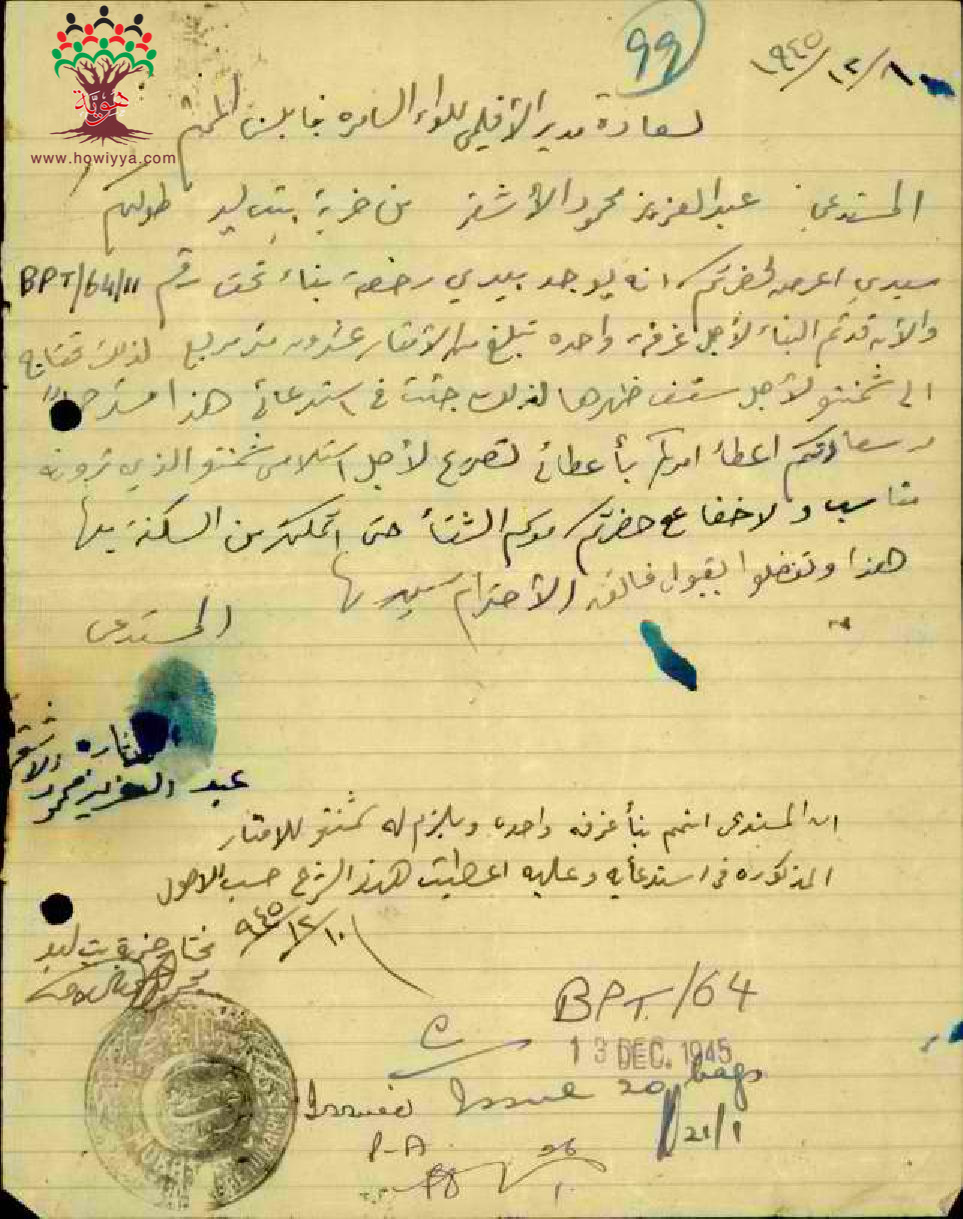 هوية
www.howiyya.com
99
١٩٤٥/١٢/٨
لسعادة مدير الأقليمي للواء السامرة نابلس المحترم
المستدعي عبد العزيز محمود الأشقر من خربة بيت ليد طولكرم
سيدي اعرض لحضرتكم انه يوجد بيدي رخصة بناء تحت رقم BPT/64/11
والآن قد تم البناء لأجل غرفة واحده تبلغ من الأمتار عشرون متر مربع لذلك تحتاج
الى شمنتو لأجل سقف ظهرها لذلك جئت في استدعائي هذا مسترحماً
من سعادتكم اعطاء امركم بأعطائي تصريح لأجل استلامي شمنتو الذي ترونه
مناسب ولا خفا ع حضرتكم موسم الشتاء حتى اتمكن من السكنة بها
هذا وتفضلوا بقبول فائق الأحترام سيدي
المستدعي
عبد العزيز محمود
الاشقر
ان المستدعي اتمم بناء غرفه واحده ويلزم له شمنتو للامتار
المذكوره في استدعايه وعليه اعطيت هذا الشرح حسب الاصول
٩٤٥/١٢/١٠
مختار خربة بيت ليد
BPT/64
13 DEC. 1945
Issue 20 bags
Issued
21/1
P-A
26
1